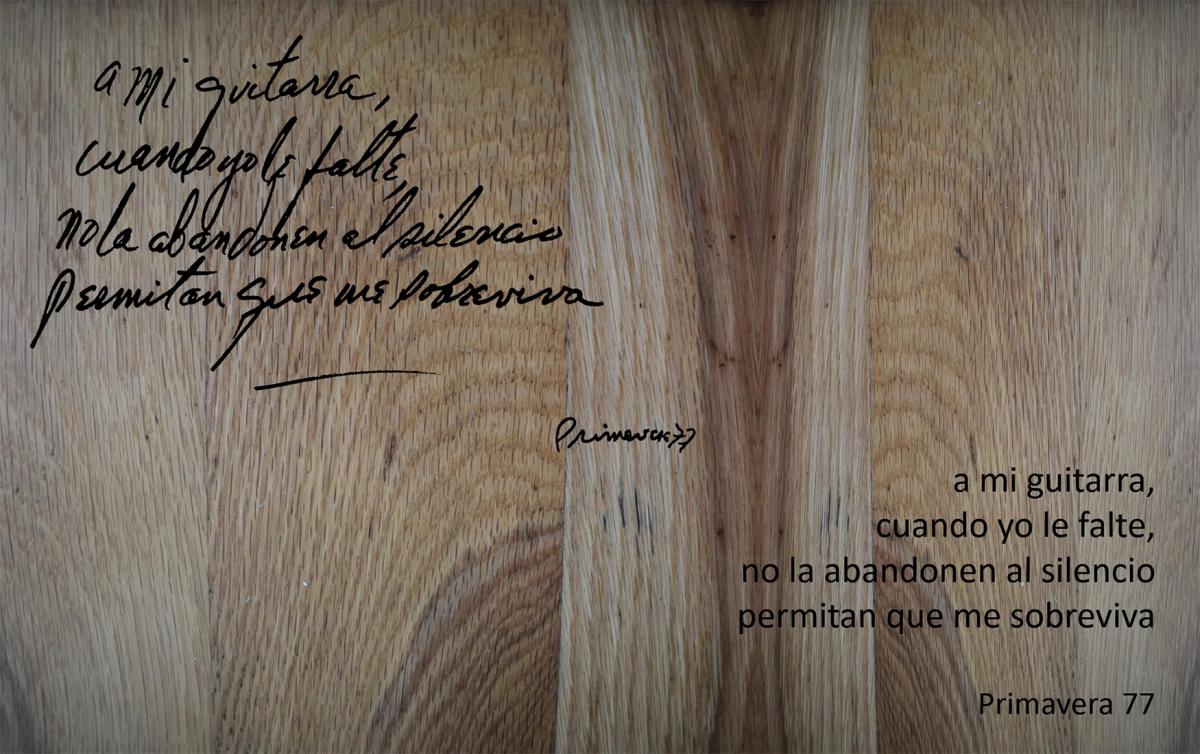 a mi guitarra,
cuando yo le falte,
no la abandonen al silencio
permitan que me sobreviva
Primavera 77
a mi guitarra,
cuando yo le falte,
no la abandonen al silencio
permitan que me sobreviva
Primavera 77